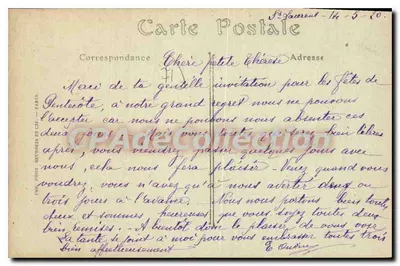 St Laurent - 14 - 5 - 20
Carte Postale
Correspondance
Adresse
Chère petite Thérèse
Merci de ta gentille invitation pour les fêtes de
Pentecôte, à notre grand regret nous ne pouvons
l'accepter car nous ne pouvons nous absenter ces
deux jours. Mais vous bien libres
après, vous viendrez passer quelques jours avec
nous, cela nous fera plaisir. Venez quand vous
voudrez, vous n'avez qu'à nous avertir deux ou
trois jours à l'avance. Nous nous portons bien toutes
deux et sommes heureuses que vous soyez toutes deux
bien remises. - A bientôt donc le plaisir de vous voir
La tante se joint à moi pour vous embrasser toutes trois
bien affectueusement
CPADeCollection